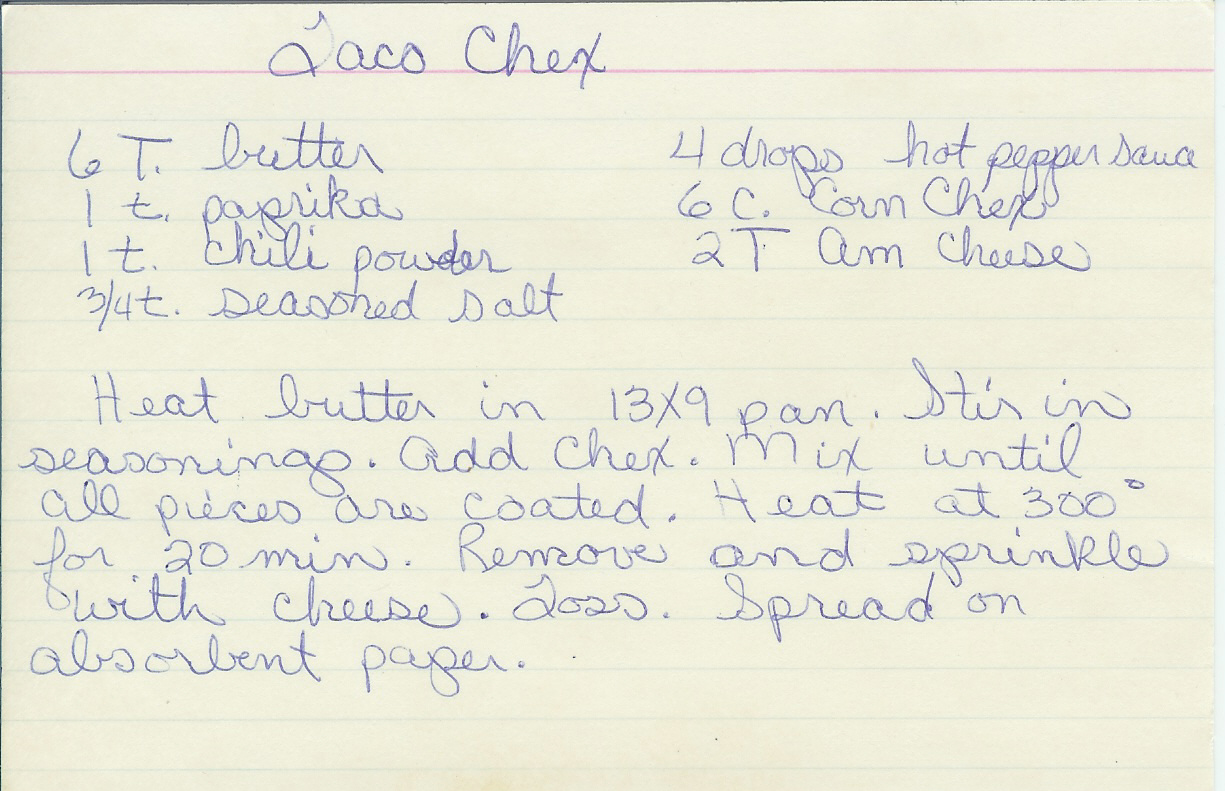 Taco Chex
6 T. butter
1 t. paprika
1 t. chili powder
3/4 t. seasoned salt
4 drops hot pepper sauce
6 C. Corn Chex
2 T Am Cheese
Heat butter in 13X9 pan. Stir in
seasonings. Add Chex. Mix until
all pieces are coated. Heat at 300°
for 20 min. Remove and sprinkle
with cheese. Toss. Spread on
absorbent paper.